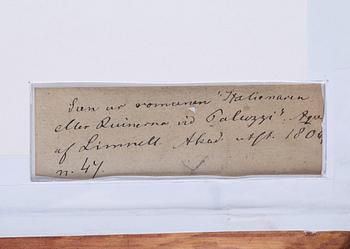 Scen ur romanen "Italienaren
eller Ruinerna vid Paluzzi". Aqua
af Limnell. Akad. utst. 1804
n. 47.